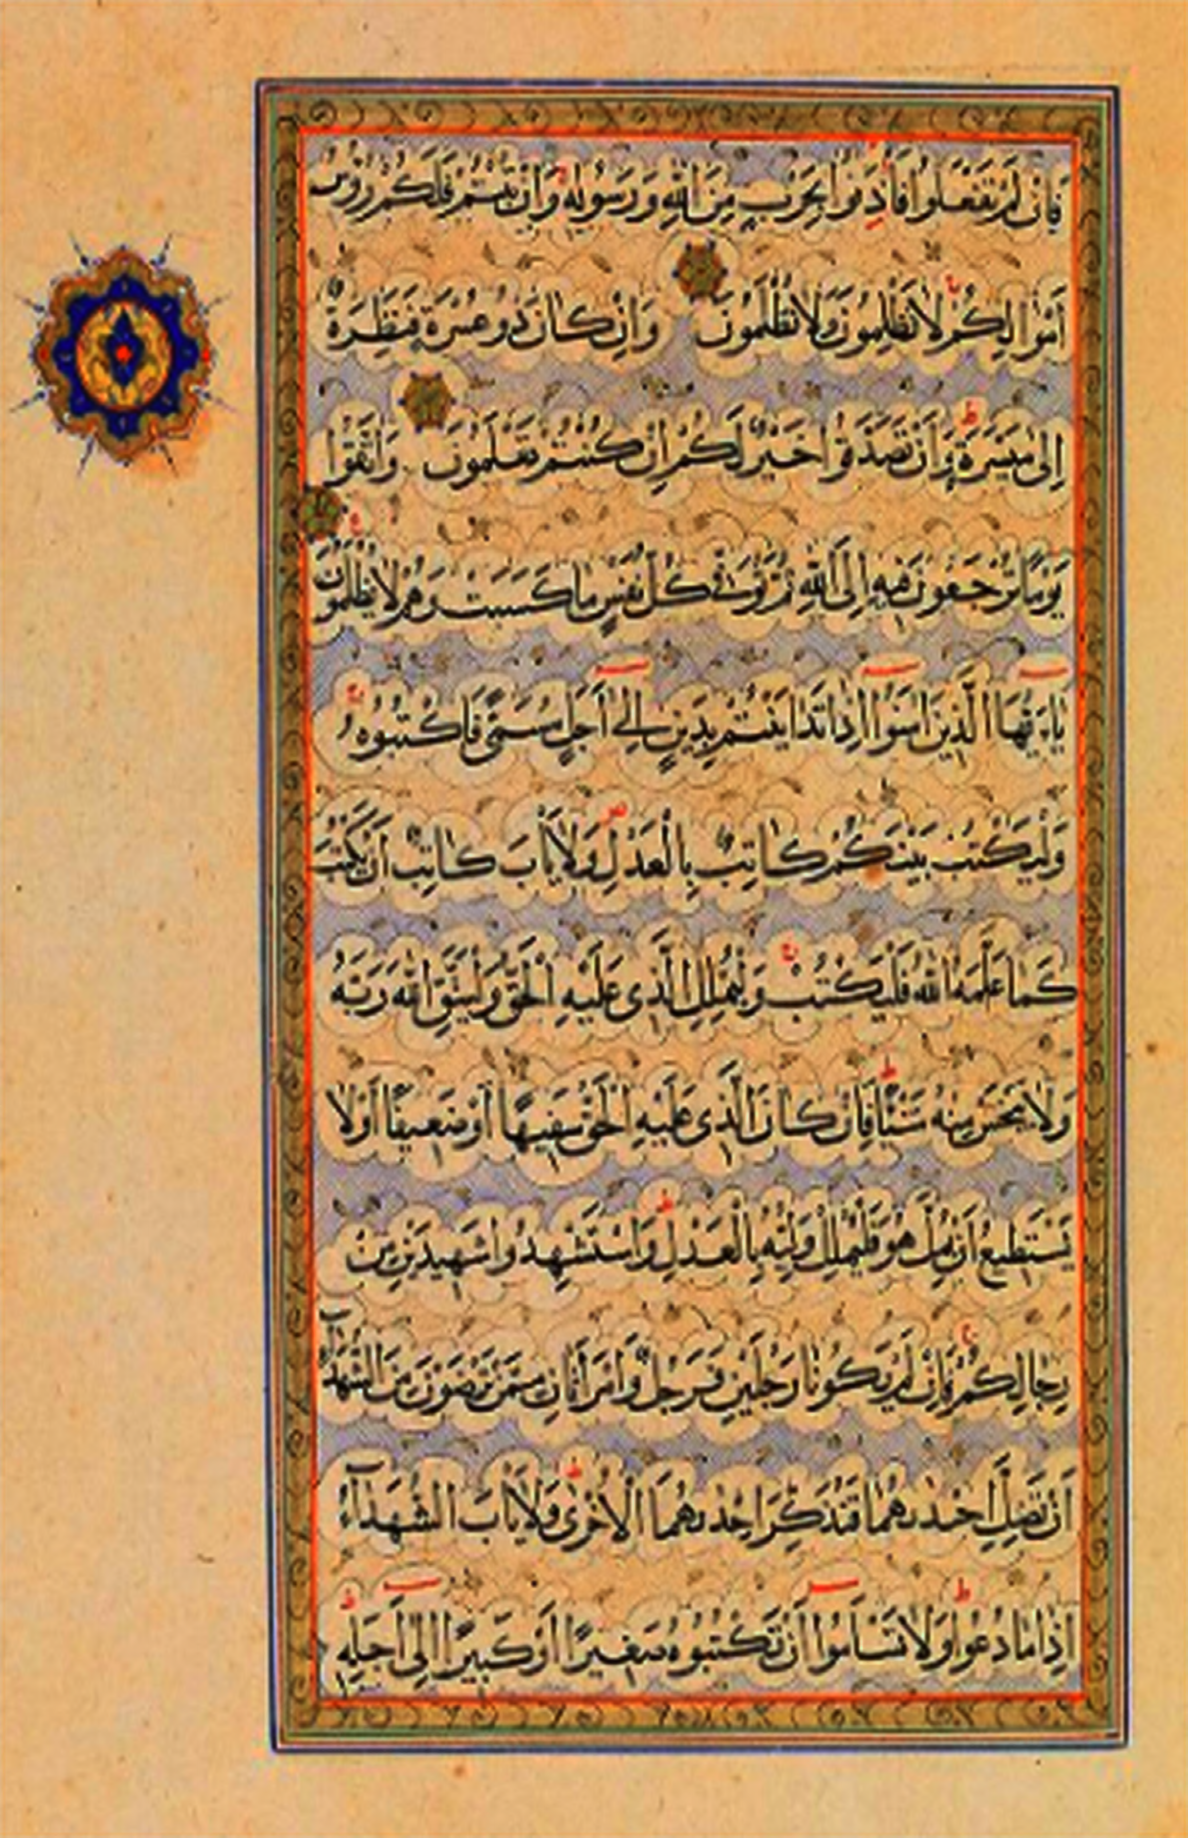 فَإِنْ لَمْ تَفْعَلُوا فَأْذَنُوا بِحَرْبٍ مِنَ اللَّهِ وَرَسُولِهِ وَإِنْ تُبْتُمْ فَلَكُمْ رُؤُسُ
أَمْوَالِكُمْ لَا تَظْلِمُونَ وَلَا تُظْلَمُونَ وَإِنْ كَانَ ذُو عُسْرَةٍ فَنَظِرَةٌ
إِلَى مَيْسَرَةٍ وَأَنْ تَصَدَّقُوا خَيْرٌ لَكُمْ إِنْ كُنْتُمْ تَعْلَمُونَ وَاتَّقُوا
يَوْمًا تُرْجَعُونَ فِيهِ إِلَى اللَّهِ ثُمَّ تُوَفَّى كُلُّ نَفْسٍ مَا كَسَبَتْ وَهُمْ لَا يُظْلَمُونَ
يَاءَيُّهَا الَّذِينَ آمَنُوا إِذَا تَدَايَنْتُمْ بِدَيْنٍ إِلَى أَجَلٍ مُسَمًّى فَاكْتُبُوهُ
وَلْيَكْتُبْ بَيْنَكُمْ كَاتِبٌ بِالْعَدْلِ وَلَا يَأْبَ كَاتِبٌ أَنْ يَكْتُبَ
كَمَا عَلَّمَهُ اللَّهُ فَلْيَكْتُبْ وَلْيُمْلِلِ الَّذِي عَلَيْهِ الْحَقُّ وَلْيَتَّقِ اللَّهَ رَبَّهُ
وَلَا يَبْخَسْ مِنْهُ شَيْئًا فَإِنْ كَانَ الَّذِي عَلَيْهِ الْحَقُّ سَفِيهًا أَوْ ضَعِيفًا أَوْ لَا
يَسْتَطِيعُ أَنْ يُمِلَّ هُوَ فَلْيُمْلِلْ وَلِيُّهُ بِالْعَدْلِ وَاسْتَشْهِدُوا شَهِيدَيْنِ مِنْ
رِجَالِكُمْ فَإِنْ لَمْ يَكُونَا رَجُلَيْنِ فَرَجُلٌ وَامْرَأَتَانِ مِمَّنْ تَرْضَوْنَ مِنَ الشُّهَدَآءِ
أَنْ تَضِلَّ إِحْدَاهُمَا فَتُذَكِّرَ إِحْدَاهُمَا الْأُخْرَى وَلَا يَأْبَ الشُّهَدَآءُ
إِذَا مَا دُعُوا وَلَا تَسْأَمُوا أَنْ تَكْتُبُوهُ صَغِيرًا أَوْ كَبِيرًا إِلَى أَجَلِهِ